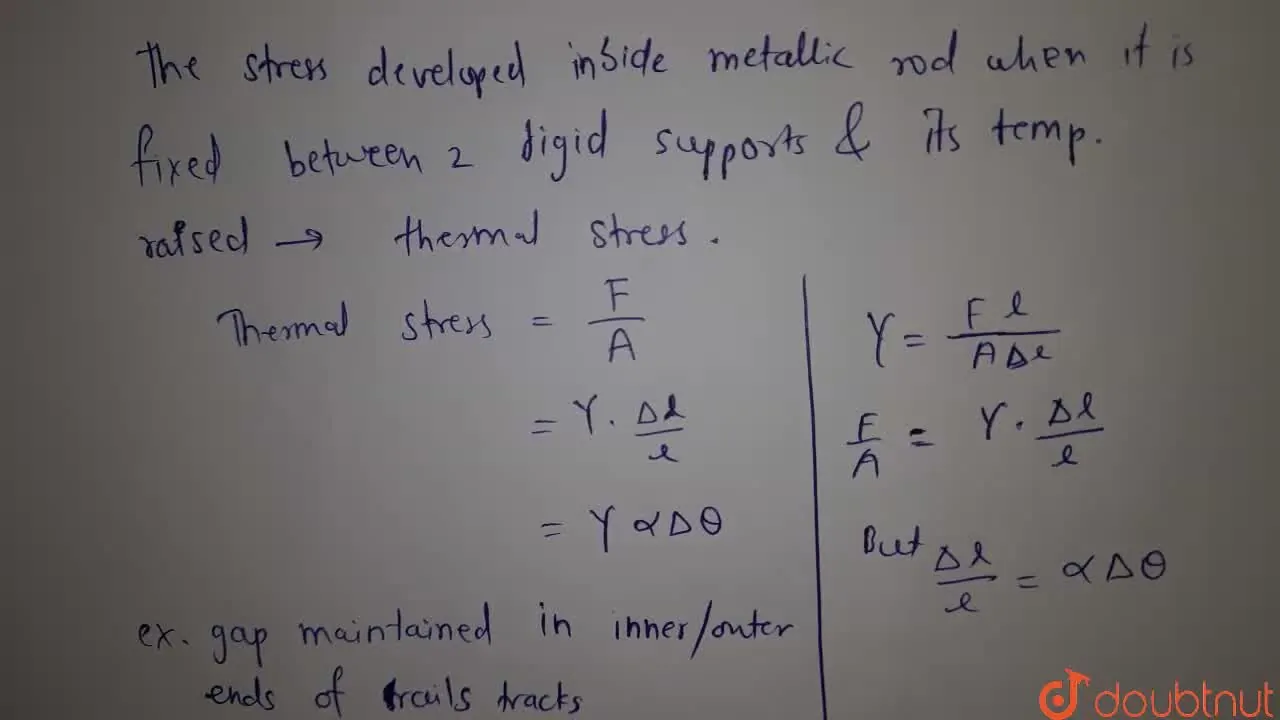 The stress developed inside metallic rod when it is
fixed between 2 rigid supports & its temp.
raised → thermal stress.
Thermal stress = F/A
= Y. Δl/l
= Y α Δθ
ex. gap maintained in inner/outer
ends of rails tracks
Y = F l/A Δl
F/A = Y. Δl/l
But Δl/l = α Δθ
doubtnut